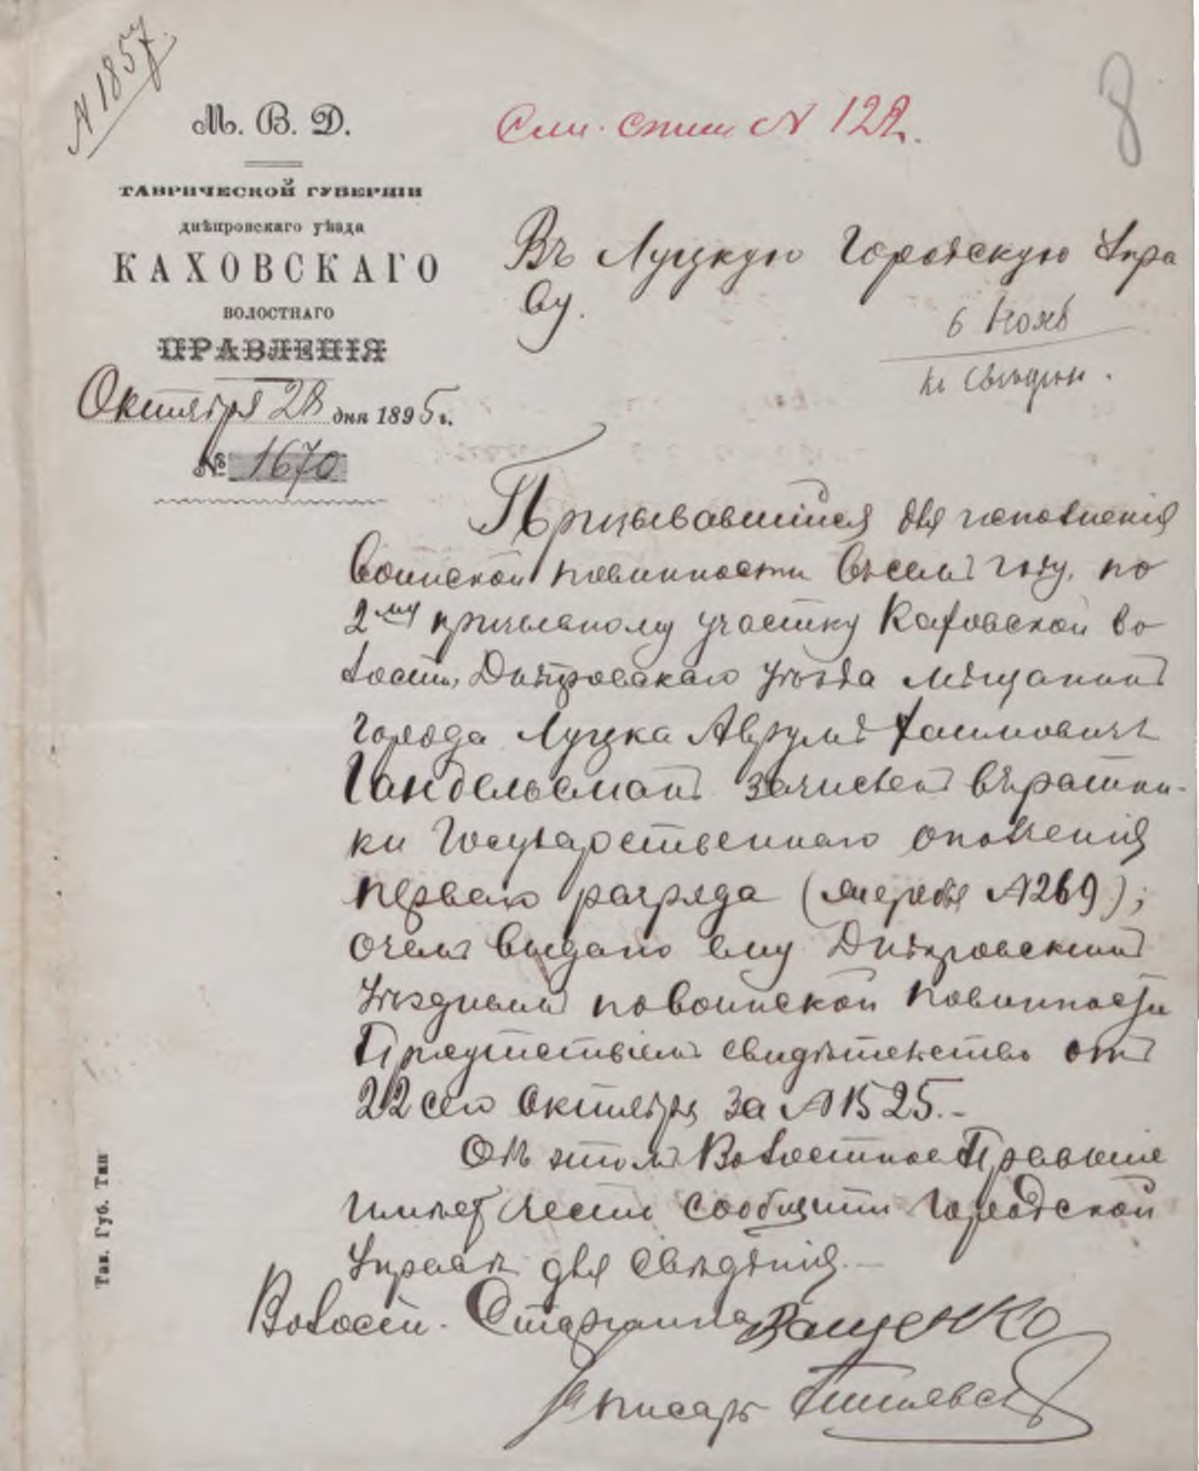 N 1857
М. В. Д.
ТАВРИЧЕСКОЙ ГУБЕРНІИ
днѣпровскаго уѣзда
КАХОВСКАГО
ВОЛОСТНАГО
ПРАВЛЕНІЯ
Октября 28 дня 1895 г.
№ 1670
См. спис N 122.
8
Въ Луцкую Городскую Упра
ву.
6 Нояб
Къ свѣдѣн.
Призывавшійся для исполненія
воинской повинности въ семъ году, по
2му призывному участку Каховской во
лости, Днѣпровскаго уѣзда мѣщанинъ
города Луцка Аврумъ Хаимовичъ
Гандельсманъ зачисленъ въ ратни-
ки Государственнаго ополченія
перваго разряда (жеребья N 269);
о чемъ выдано ему Днѣпровскимъ
Уѣзднымъ по воинской повинности
Присутствіемъ свидѣтельство отъ
22 сего Октября за N 1525.-
Объ этомъ Волостное Правленіе
имѣетъ честь сообщить Городской
Управѣ для свѣдѣнія.-
Волост. Старшина Ващенко
Писарь
Тав. Губ. Тип